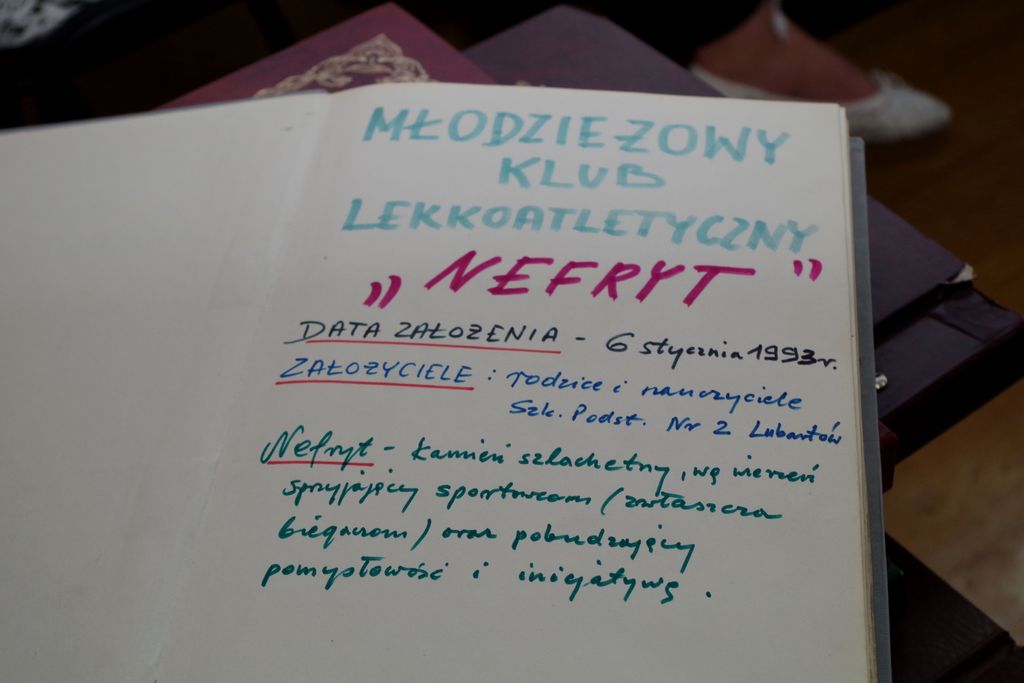 MŁODZIEŻOWY
KLUB
LEKKOATLETYCZNY
„NEFRYT"
DATA ZAŁOŻENIA - 6 stycznia 1993 r.
ZAŁOŻYCIELE : rodzice i nauczyciele
Szk. Podst. Nr 2 Lubartów
Nefryt - kamień szlachetny, wg wierzeń
sprzyjający sportowcom (zwłaszcza
biegaczom) oraz pobudzający
pomysłowość i inicjatywę.